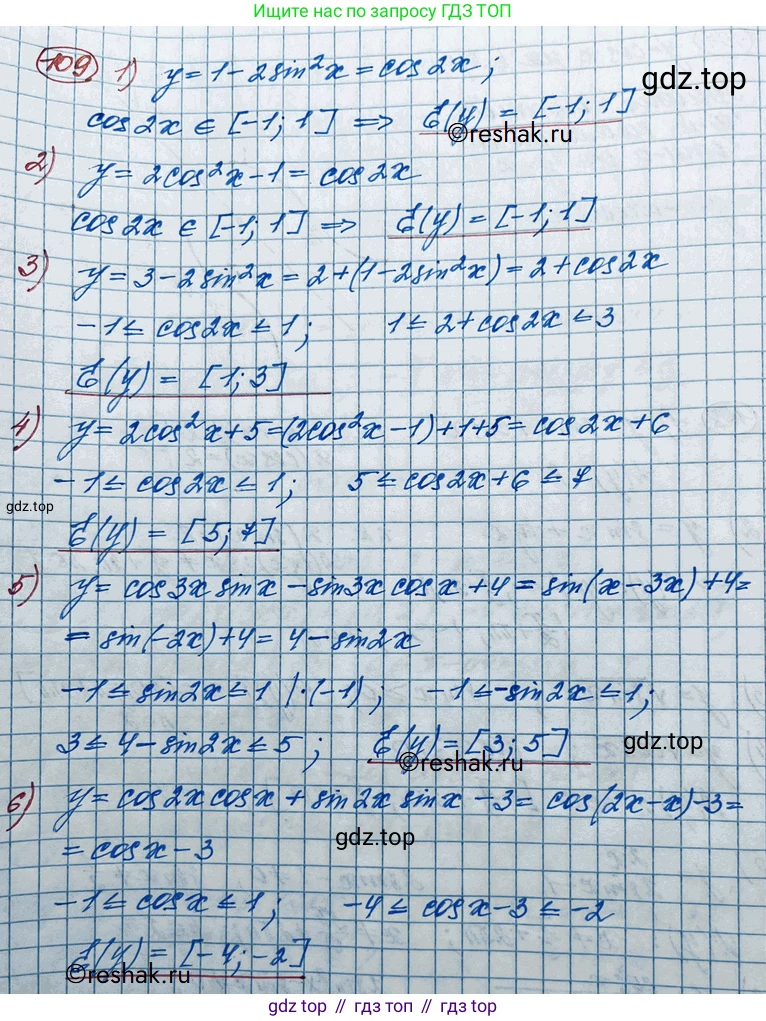 Ищите нас по запросу ГДЗ ТОП
109 1) y = 1 - 2sin²x = cos2x;
gdz.top
cos2x ∈ [-1; 1] ⇒ E(y) = [-1; 1]
©reshak.ru
2) y = 2cos²x - 1 = cos2x
cos2x ∈ [-1; 1] ⇒ E(y) = [-1; 1]
3) y = 3 - 2sin²x = 2 + (1 - 2sin²x) = 2 + cos2x
-1 ≤ cos2x ≤ 1; 1 ≤ 2 + cos2x ≤ 3
E(y) = [1; 3]
4) y = 2cos²x + 5 = (2cos²x - 1) + 1 + 5 = cos2x + 6
-1 ≤ cos2x ≤ 1; 5 ≤ cos2x + 6 ≤ 7
gdz.top
E(y) = [5; 7]
5) y = cos3x sinx - sin3x cosx + 4 = sin(x - 3x) + 4 =
= sin(-2x) + 4 = 4 - sin2x
-1 ≤ sin2x ≤ 1 |·(-1); -1 ≤ -sin2x ≤ 1;
3 ≤ 4 - sin2x ≤ 5; E(y) = [3; 5]
gdz.top
©reshak.ru
6) y = cos2x cosx + sin2x sinx - 3 = cos(2x - x) - 3 =
gdz.top
= cosx - 3
-1 ≤ cosx ≤ 1; -4 ≤ cosx - 3 ≤ -2
E(y) = [-4; -2]
©reshak.ru
gdz.top // гдз топ // gdz top